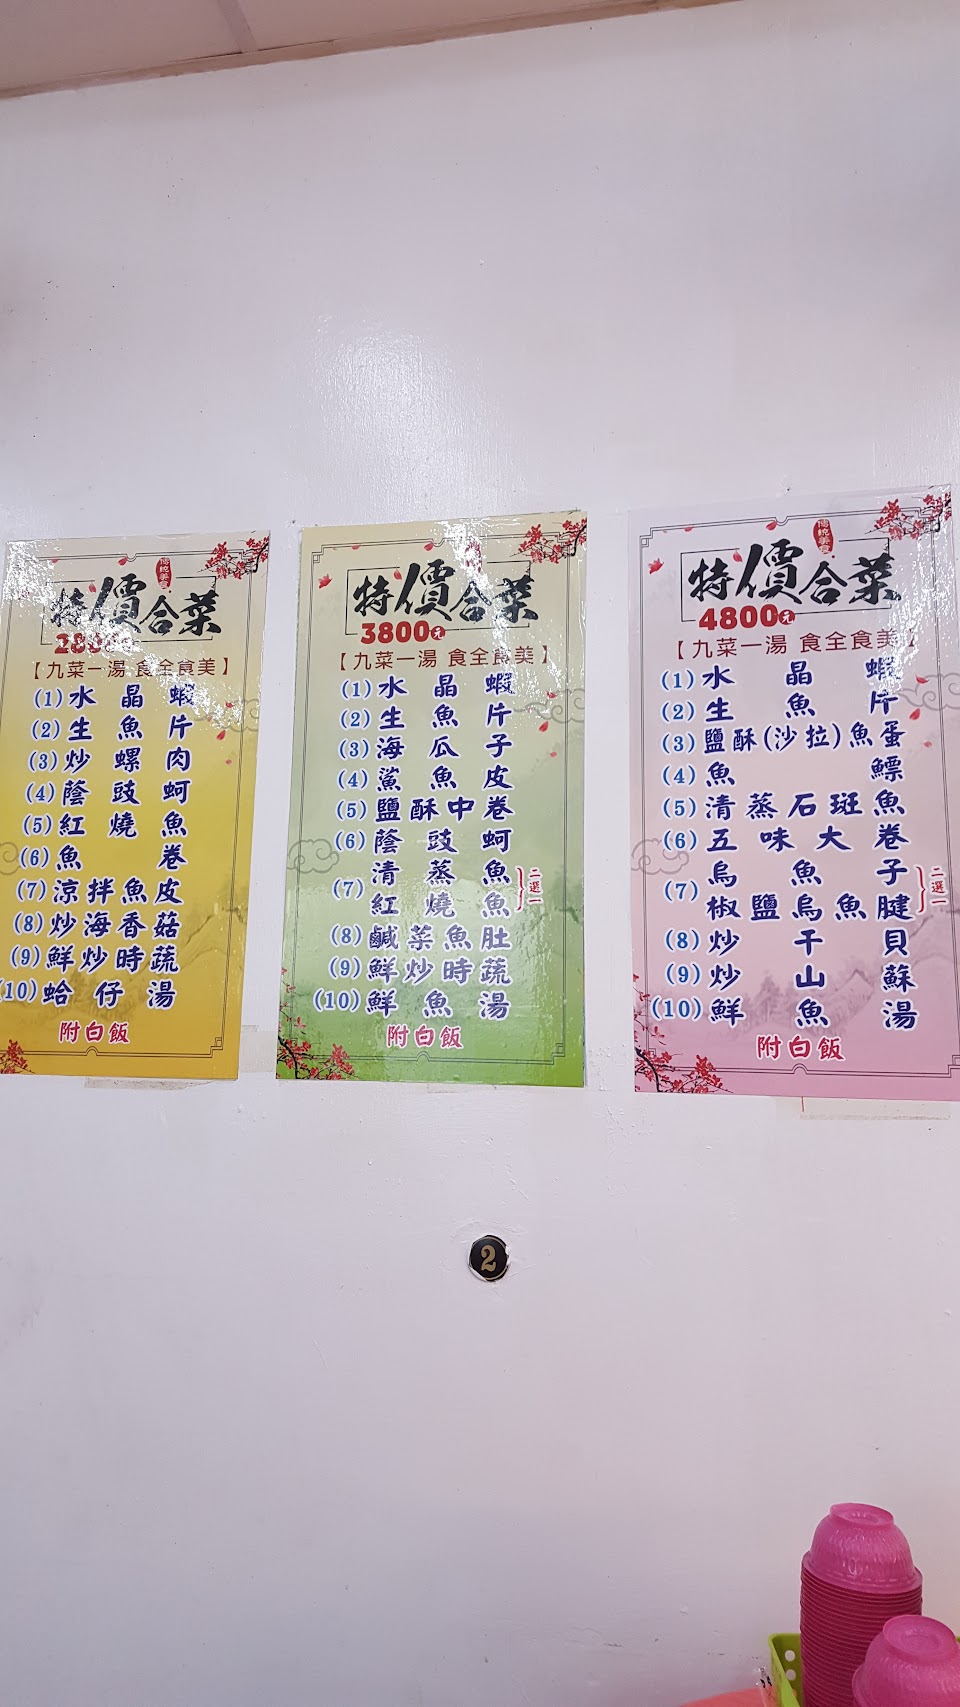 傳統美食
特價合菜
2800元
【九菜一湯 食全食美】
(1)水晶蝦
(2)生魚片
(3)炒螺肉
(4)蔭豉蚵
(5)紅燒魚
(6)魚卷
(7)涼拌魚皮
(8)炒海香菇
(9)鮮炒時蔬
(10)蛤仔湯
附白飯
特價合菜
3800元
【九菜一湯 食全食美】
(1)水晶蝦
(2)生魚片
(3)海瓜子
(4)鯊魚皮
(5)鹽酥中卷
(6)蔭豉蚵
(7)清蒸魚
紅燒魚
二選一
(8)鹹菜魚肚
(9)鮮炒時蔬
(10)鮮魚湯
附白飯
傳統美食
特價合菜
4800元
【九菜一湯 食全食美】
(1)水晶蝦
(2)生魚片
(3)鹽酥(沙拉)魚蛋
(4)魚鰾
(5)清蒸石斑魚
(6)五味大卷
(7)烏魚子
椒鹽烏魚腱
二選一
(8)炒干貝
(9)炒山蘇
(10)鮮魚湯
附白飯
2